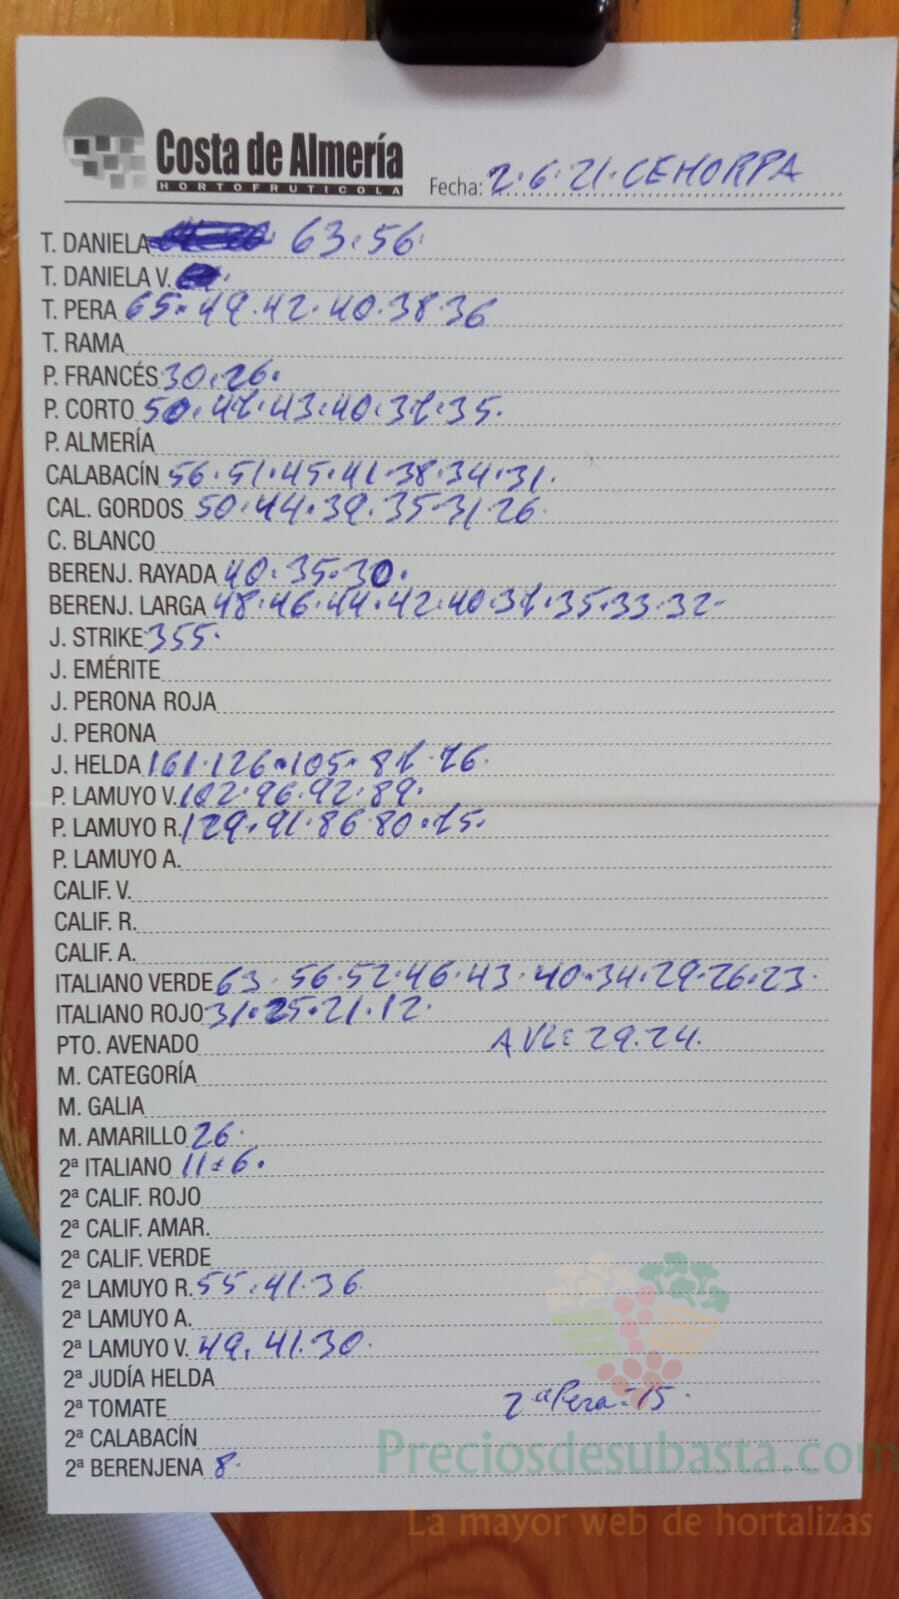 Costa de Almería
HORTOFRUTICOLA
Fecha: 2.6.21. CEHORPA
T. DANIELA 63.56.
T. DANIELA V.
T. PERA 65.49.42.40.38.36
T. RAMA
P. FRANCÉS 30.26.
P. CORTO 50.47.43.40.37.35.
P. ALMERÍA
CALABACÍN 56.51.45.41.38.34.31.
CAL. GORDOS 50.44.39.35.31.26.
C. BLANCO
BERENJ. RAYADA 40.35.30.
BERENJ. LARGA 48.46.44.42.40.37.35.33.32.
J. STRIKE 355.
J. EMÉRITE
J. PERONA ROJA
J. PERONA
J. HELDA 161.126.105.87.76.
P. LAMUYO V. 102.96.92.89.
P. LAMUYO R. 129.91.86.80.75.
P. LAMUYO A.
CALIF. V.
CALIF. R.
CALIF. A.
ITALIANO VERDE 63.56.52.46.43.40.34.29.26.23.
ITALIANO ROJO 31.25.21.12.
PTO. AVENADO 29.24.
M. CATEGORÍA
M. GALIA
M. AMARILLO 26.
2ª ITALIANO 11.6.
2ª CALIF. ROJO
2ª CALIF. AMAR.
2ª CALIF. VERDE
2ª LAMUYO R. 55.41.36
2ª LAMUYO A.
2ª LAMUYO V. 49.41.30.
2ª JUDÍA HELDA
2ª TOMATE 2ª Pera = 15.
2ª CALABACÍN
2ª BERENJENA 8.
Preciosdesubasta.com
La mayor web de hortalizas